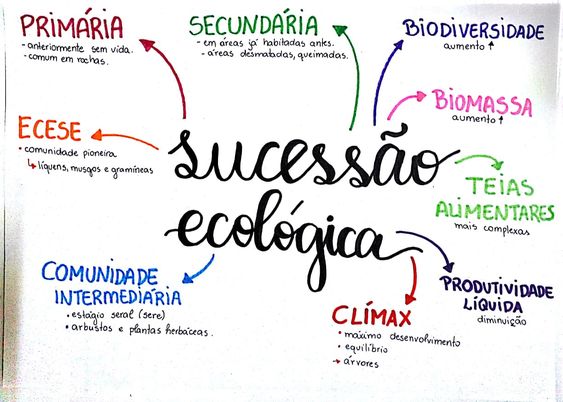 PRIMÁRIA
- anteriormente sem vida.
- comum em rochas.
SECUNDÁRIA
- em áreas já habitadas antes.
- áreas desmatadas, queimadas.
BIODIVERSIDADE
aumento ↑
BIOMASSA
aumento ↑
ECESE
• comunidade pioneira
↳ líquens, musgos e gramíneas
sucessão
ecológica
TEIAS
ALIMENTARES
mais complexas
COMUNIDADE
INTERMEDIÁRIA
• estágio seral (sere)
• arbustos e plantas herbáceas.
CLÍMAX
• máximo desenvolvimento
• equilíbrio
→ árvores
PRODUTIVIDADE
LÍQUIDA
diminuição